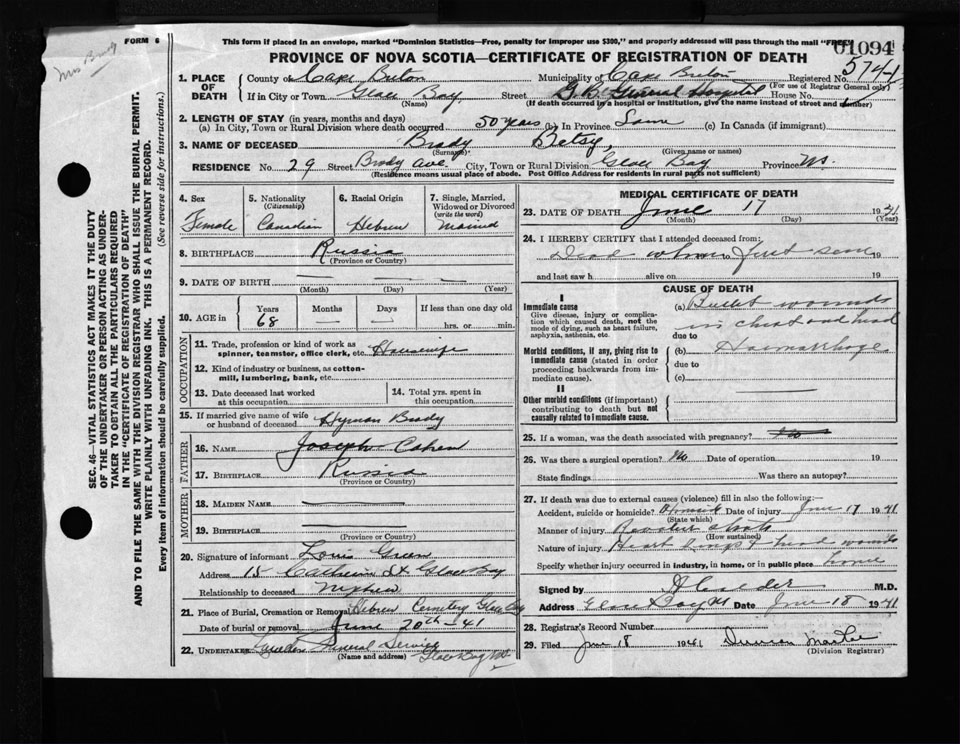 FORM 6
This form if placed in an envelope, marked "Dominion Statistics—Free, penalty for improper use $300," and properly addressed will pass through the mail "FREE"
01094
Mrs Brady
PROVINCE OF NOVA SCOTIA—CERTIFICATE OF REGISTRATION OF DEATH
574
1. PLACE OF DEATH County of Cape Breton Municipality of Cape Breton Registered No.
(For use of Registrar General only)
If in City or Town Glace Bay Street G.B. General Hospital House No.
(Name) (If death occurred in a hospital or institution, give the name instead of street and number)
2. LENGTH OF STAY (in years, months and days)
(a) In City, Town or Rural Division where death occurred 50 years (b) In Province Same (c) In Canada (if immigrant)
3. NAME OF DECEASED Brady Betsy,
(Surname) (Given name or names)
RESIDENCE No. 29 Street Brody Ave. City, Town or Rural Division Glace Bay Province NS.
(Residence means usual place of abode. Post Office Address for residents in rural parts not sufficient)
4. Sex
Female
5. Nationality
(Citizenship)
Canadian
6. Racial Origin
Hebrew
7. Single, Married, Widowed or Divorced
(write the word)
Married
8. BIRTHPLACE Russia
(Province or Country)
9. DATE OF BIRTH
(Month) (Day) (Year)
10. AGE in Years Months Days If less than one day old
68 hrs. or min.
OCCUPATION
11. Trade, profession or kind of work as spinner, teamster, office clerk, etc. Housewife
12. Kind of industry or business, as cotton-mill, lumbering, bank, etc.
13. Date deceased last worked at this occupation
14. Total yrs. spent in this occupation
15. If married give name of wife or husband of deceased Hyman Brody
FATHER
16. NAME Joseph Cohen
17. BIRTHPLACE Russia
(Province or Country)
MOTHER
18. MAIDEN NAME
19. BIRTHPLACE
(Province or Country)
20. Signature of informant Louis Green
Address 15 Catherine St Glace Bay
Relationship to deceased Nephew
21. Place of Burial, Cremation or Removal Hebrew Cemetery Glace Bay
Date of burial or removal June 20th-41
22. UNDERTAKER Funeral Service
(Name and address) Glace Bay NS
MEDICAL CERTIFICATE OF DEATH
23. DATE OF DEATH June 17 1941
(Month) (Day) (Year)
24. I HEREBY CERTIFY that I attended deceased from:
Dead when to first seen 19
and last saw h alive on 19
CAUSE OF DEATH
I
Immediate cause
Give disease, injury or complication which caused death, not the mode of dying, such as heart failure, asphyxia, asthenia, etc.
(a) Bullet wounds
due to in chest and head
Morbid conditions, if any, giving rise to immediate cause (stated in order proceeding backwards from immediate cause).
(b) Haemorrhage
due to
(c)
II
Other morbid conditions (if important) contributing to death but not causally related to immediate cause.
25. If a woman, was the death associated with pregnancy? No
26. Was there a surgical operation? No Date of operation 19
State findings Was there an autopsy?
27. If death was due to external causes (violence) fill in also the following:—
Accident, suicide or homicide? Homicide Date of injury June 17 1941
(State which)
Manner of injury Revolver shots
(How sustained)
Nature of injury Heart lungs & head wounds
Specify whether injury occurred in industry, in home, or in public place home
Signed by M.D.
Address Glace Bay NS Date June 18 1941
28. Registrar's Record Number
29. Filed June 18 1941 Duncan
(Division Registrar)
SEC. 46—VITAL STATISTICS ACT MAKES IT THE DUTY
OF THE UNDERTAKER OR PERSON ACTING AS UNDER-
TAKER TO OBTAIN ALL THE PARTICULARS REQUIRED
IN THE "CERTIFICATE OF REGISTRATION OF DEATH"
AND TO FILE THE SAME WITH THE DIVISION REGISTRAR WHO SHALL ISSUE THE BURIAL PERMIT.
WRITE PLAINLY WITH UNFADING INK. THIS IS A PERMANENT RECORD.
Every item of information should be carefully supplied. (See reverse side for instructions.)